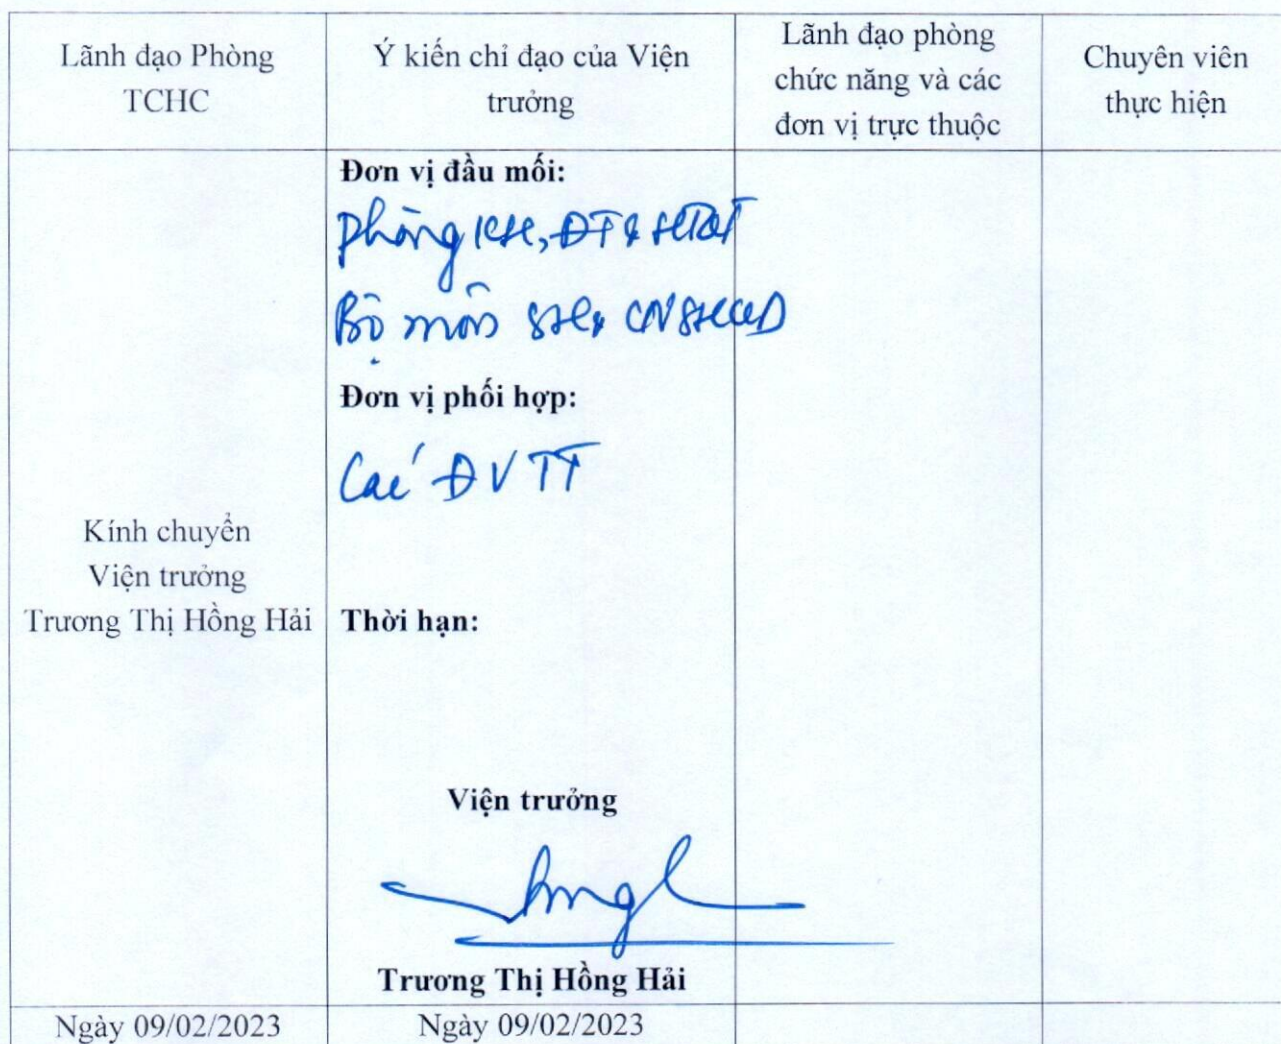 Lãnh đạo Phòng
TCHC
Ý kiến chỉ đạo của Viện
trưởng
Lãnh đạo phòng
chức năng và các
đơn vị trực thuộc
Chuyên viên
thực hiện
Kính chuyển
Viện trưởng
Trương Thị Hồng Hải
Đơn vị đầu mối:
Phòng KH, ĐT &
Bộ môn SH &
Đơn vị phối hợp:
Các ĐVTT
Thời hạn:
Viện trưởng
Trương Thị Hồng Hải
Ngày 09/02/2023
Ngày 09/02/2023